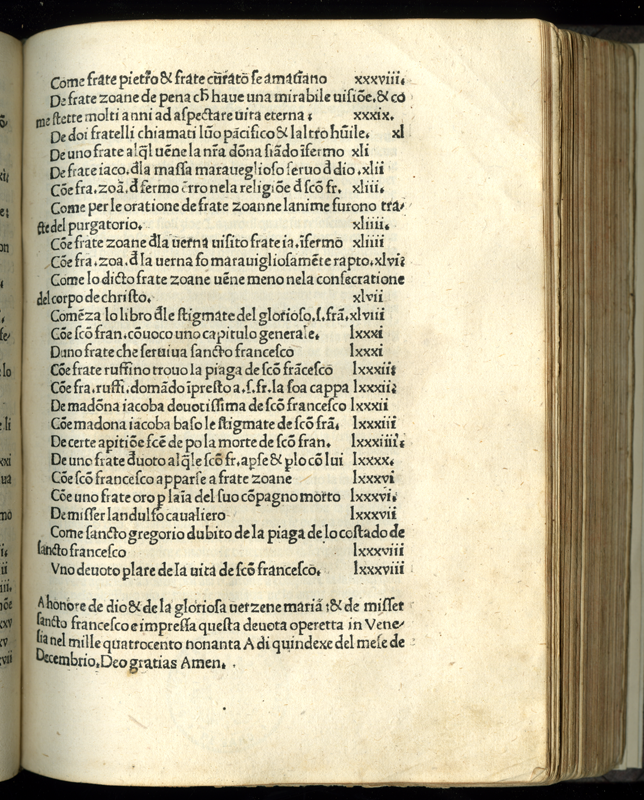 Come frate pietro & frate curato se amauano xxxviii.
De frate zoane de pena ch̄ haue una mirabile uisiōe.& co
me stette molti anni ad aspectare uita eterna . xxxix.
De doi fratelli chiamati lūo pacifico & laltro hūile. xl
De uno frate alq̄l uēne la nr̄a dōna siādo īfermo xli
De frate iaco.d̄la massa marauegliofo seruo d̄ dio .xlii
Cōe fra.zoā.d̄ fermo ērro nela religiōe d̄ scō fr. xliii.
Come per le oratione de frate zoanne lanime furono tra-
cte del purgatorio. xliiii.
Cōe frate zoane d̄la uerna uisito frate ia.īfermo xliiii
Cōe fra.zoa.d̄ la uerna fo marauigliosamēte rapto.xlvi.
Come lo dicto frate zoane uēne meno nela consecratione
del corpo de christo. xlvii
Comēza lo libro d̄le stigmate del glorioso.s.frā.xlviii
Cōe scō fran.cōuoco uno capitulo generale. lxxxi
Duno frate che seruiua sancto francesco lxxxi
Cōe frate ruffino trouo la piaga de scō frācesco lxxxii.
Cōe fra.ruffi.domādo īpresto a.s.fr.la soa cappa lxxxii.
De madōna iacoba deuotissima de scō francesco lxxxii
Cōe madona iacoba baso le stigmate de scō frā. lxxxiii
De certe apitiōe fcē de po la morte de scō fran. lxxxiiii.
De uno frate d̄uoto alq̄le scō fr.apse & plo cō lui lxxxx.
Cōe scō francesco apparse a frate zoane lxxxvi
Cōe uno frate oro p laīa del suo cōpagno morto lxxxvi.
De misser landulfo caualiero lxxxvii
Come sancto gregorio dubito de la piaga de lo costado de
sancto francesco lxxxviii
Vno deuoto plare de la uita de scō francesco. lxxxviii
A honore de dio & de la gloriosa uerzene maria :& de misser
sancto francesco e impressa questa deuota operetta in Vene-
sia nel mille quatrocento nonanta A di quindexe del mese de
Decembrio.Deo gratias Amen. .